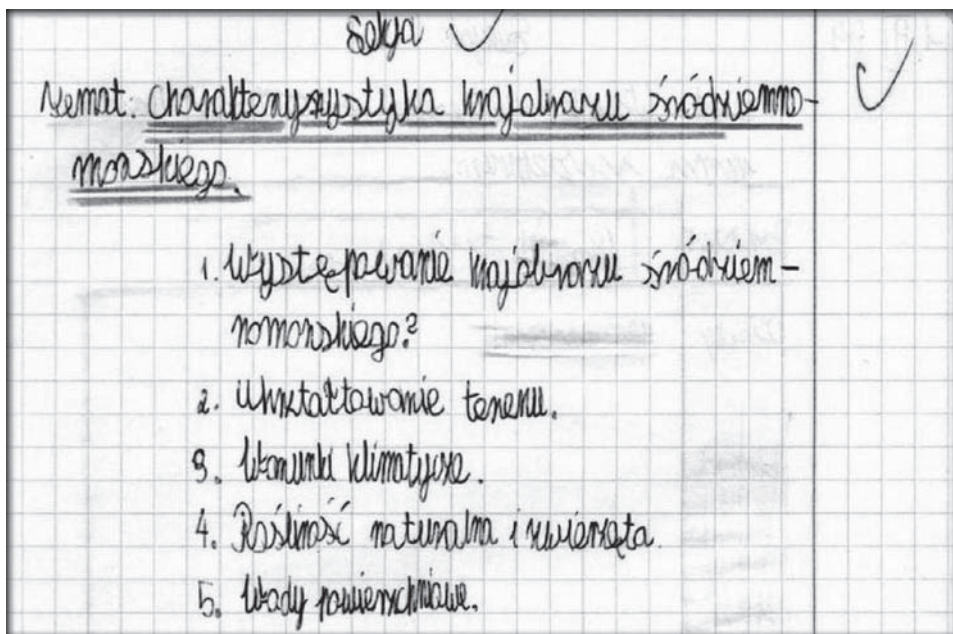 Temat: Charakteryzystyka krajobrazu śródziemno-
morskiego.
1. Występowanie krajobrazu śródziem-
nomorskiego?
2. Ukształtowanie terenu.
3. Warunki klimatycze.
4. Rośliność naturalna i zwierzęta.
5. Wody powierzchniowe.